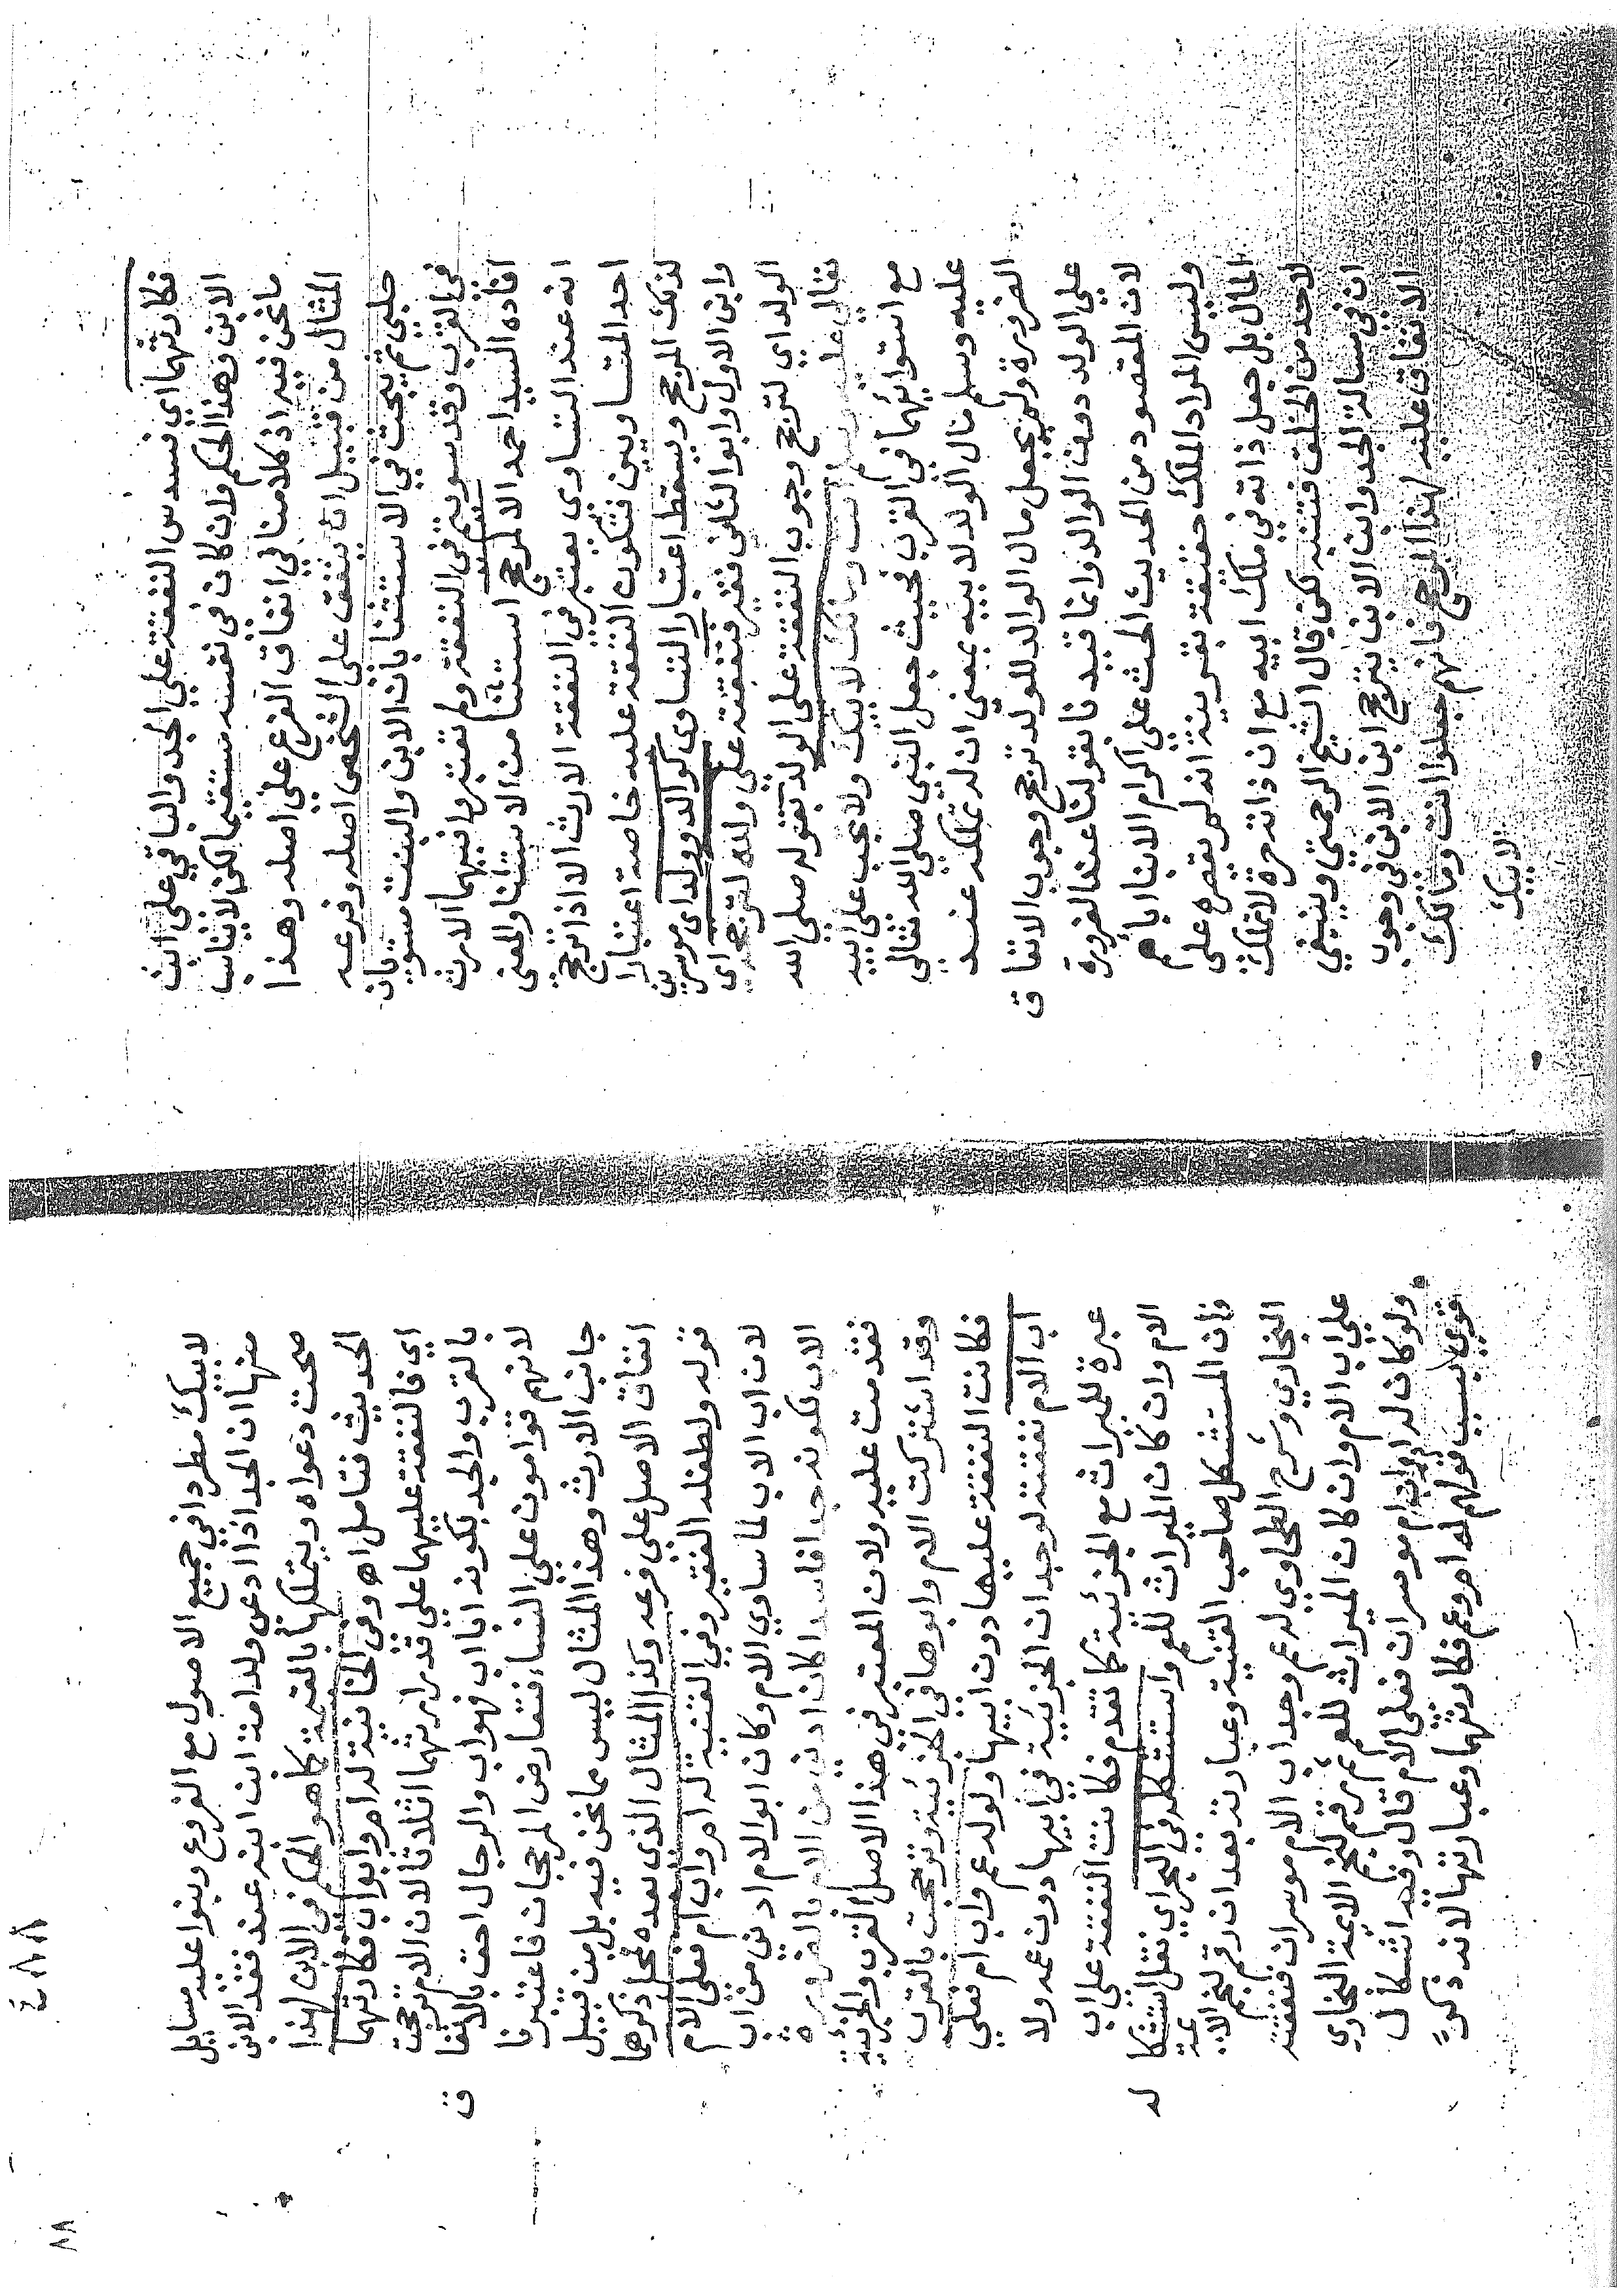 فكارثهما اي فسدس النفقة علي الجد والباقي علي ابن
الابن وهذا الحكم وان كان في نفسه مستقيما لكن لا يناسب
ما نحن فيه اذ كلامنا في انفاق الفرع علي اصله وهذا
المثال من قبيل ان ينفق علي الشخص اصله وفرعه
حلبي ثم يبحث في الاستثنا بان الابن والبنت مستويان
في القرب وقد سويتم في النفقة ولم تعتبروا فيهما الارث
افاده السيد احمد الا لمرجح استثنا من الاستثنا والمعني
انه عند التساوي يعتبر في النفقة الارث الا اذا ترجح
احد المتساويين فتكون النفقة عليه خاصة اعتبارا
لذلك المرجح ويسقط اعتبار التساوي كوالد وولد اي موسرين
وابن الاول وابو الثاني فقير فنفقته علي ولده لترجحه اي
الولد اي لترجح وجوب النفقة علي الولد بقوله صلي الله
تعالي عليه وسلم انت ومالك لابيك ولا يجب علي ابيه
مع استوائهما في القرب بحيث جعل النبي صلي الله تعالي
عليه وسلم مال الولد لابيه بمعني ان له تملكه عند
الضرورة ولم يجعل مال الوالد للولد ترجح وجوب الانفاق
علي الولد دون الوالد وانما قيدنا بقولنا عند الضرورة
لان المقصود من الحديث الحث علي اكرام الابنا اباهم
وليس المراد الملك حقيقة بقرينة انه لم يقصره علي
المال بل جعل ذاته في ملك ابيه مع ان ذاته حرة لا تملك
لاحد من الخلق فتنبه لكن قال الشيخ الرحمتي وينبغي
ان في مسالة الجد وابن الابن يترجح ابن الابن في وجوب
الانفاق عليه لهذا المرجح فانهم جعلوا انت ومالك
لابيك
٤٨٨
٨٨
لابيك مطردا في جميع الاصول مع الفروع وبنوا عليه مسايل
منها ان الجد اذا ادعي ولد امة ابن ابنه عند فقد الابن
صحت دعواه ويتملكها بالقيمة كما هو الحكم في الابن لهذا
الحديث فتامل اه وفي الخانية له ام وابو اب فكارثهما
اي فالنفقة عليهما علي قدر ارثهما اثلاثا لان الام ترجحت
بالقرب والجد بكونه ابا اب فهو اب والرجال احق بالانفاق
لانهم قوامون علي النساء فتعارض المرجحات فاعتبرنا
جانب الارث وهذا المثال ليس مما نحن فيه بل من قبيل
انفاق الاصل علي فرعه وكذا المثال الذي بعده كما ذكرها
قوله ولطفله الفقير وفي القنية له ام واب ام فعلي الام
لان اب الاب لما ساوي الام وكان ابو الام ادني من اب
الاب لكونه جدا فاسدا كان ادني من الام بالضرورة
فقدمت عليه ولان المعتبر في هذا الاصل القرب والجزئية
وقد اشتركت الام وابوها في الجزئية وترجحت بالقرب
فكانت النفقة عليها دون ابيها ولو له عم واب ام فعلي
اب الام نفقته لوجدان الجزئية في ابيها دون عمه ولا
عبرة للميراث مع الجزئية كما تقدم فكانت النفقة علي اب
الام وان كان الميراث للعم واستشكله في البحر اي نقل استشكاله
فان المستشكل صاحب القنية وعبارته بعد ان رقم لنجم الايمة
البخاري وشرح الطحاوي له عم وجد اب الام موسران فنفقته
علي اب الام وان كان الميراث للعم ثم رقم لنجم الايمة البخاري
ولو كان له ام واب ام موسران فعلي الام قال وفيه اشكال
قوي بسبب قولهم له ام وعم فكارثهما وعبارتها لانه ذكر